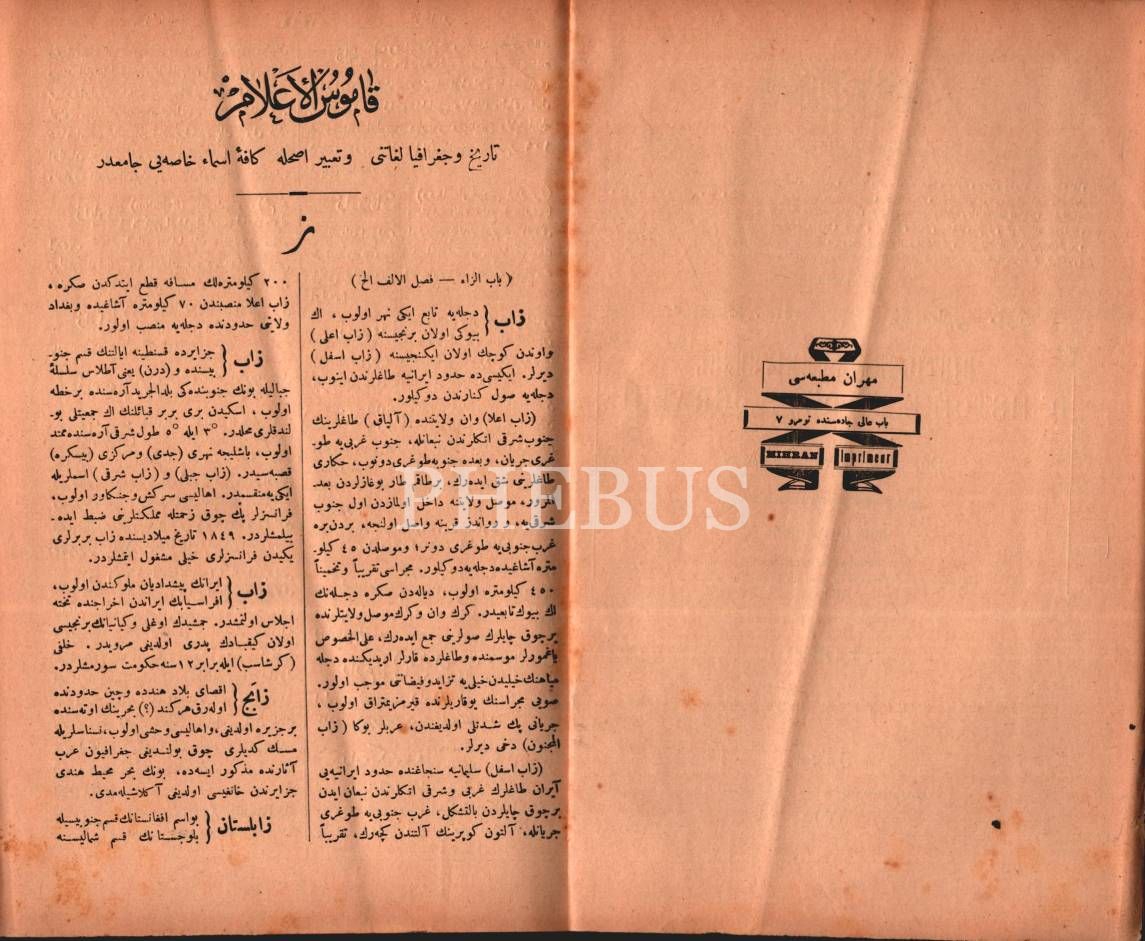 قاموس الأعلام
تاريخ وجغرافيا لغاتنى وتعبير اصحله كافهٔ اسماء خاصه‌يى جامعدر
ز
( باب الزاء — فصل الالف الخ )
زاب { دجله‌يه تابع ايكى نهر اولوب ، اك
بيوكى اولان برنجيسنه ( زاب اعلى )
واوندن كوچك اولان ايكنجيسنه ( زاب اسفل )
ديرلر. ايكيسى‌ده حدود ايرانيه طاغلرندن اينوب،
دجله‌يه صول كنارندن دوكيلور.
(زاب اعلا) وان ولايتنده ( آلباق ) طاغلرينك
جنوب شرقى اتكلرندن نبعانله، جنوب غربى‌يه طو-
غرى جريان، وبعده جنوبه طوغرى دونوب، حكارى
طاغلرينى شق ايده‌رك، برطاقم طار بوغازلردن بعد-
المرور، موصل ولايتنه داخل اولمازدن اول جنوب
شرقى‌يه، و رواندز قربنه واصل اولنجه، بردن‌بره
غرب جنوبى‌يه طوغرى دونر؛ وموصلدن ٤٥ كيلو-
متره آشاغيده دجله‌يه دوكيلور. مجراسى تقريباً وتخميناً
٤٥٠ كيلومتره اولوب ، ديالەدن صكره دجلەنك
اك بيوك تابعيدر. كرك وان وكرك موصل ولايتلرنده
برچوق چايلرك صولرينى جمع ايده‌رك، على الخصوص
ياغمورلر موسمنده وطاغلرده قارلر اريديكنده دجله
مياهنك خيليدن خيلى‌يه تزايد وفيضانى موجب اولور.
صويى مجراسنك يوقاريلرنده قيرمزيمتراق اولوب ،
جريانى پك شدتلى اولديغندن، عربلر بوكا ( زاب
المجنون ) دخى ديرلر.
(زاب اسفل) سليمانيه سنجاغنده حدود ايرانيه‌يى
آيران طاغلرك غربى وشرقى اتكلرندن نبعان ايدن
برچوق چايلردن بالتشكل، غرب جنوبى‌يه طوغرى
جريانله، آلتون كوپرينك آلتندن كچه‌رك، تقريباً
٢٠٠ كيلومتره‌لك مسافه قطع ايتدكدن صكره ،
زاب اعلا منصبندن ٧٠ كيلومتره آشاغيده وبغداد
ولايتى حدودنده دجله‌يه منصب اولور.
زاب { جزايرده قسنطينه ايالتنك قسم جنو-
بيسنده و (درن) يعنى آطلاس سلسلهٔ
جباليله بونك جنوبنده‌كى بلدالجريد آره‌سنده برخطه
اولوب ، اسكيدن برى بربر قبائلنك اك جمعيتلى بو-
لندقلرى محلدر. ٣° ايله ٥° طول شرقى آره‌سنده ممتد
اولوب، باشليجه نهرى (جدى) ومركزى (بيسكره)
قصبه‌سيدر. (زاب جبلى) و ( زاب شرقى ) اسملريله
ايكى‌يه منقسمدر. اهاليسى سركش وجنكاور اولوب،
فرانسزلر پك چوق زحمتله مملكتلرينى ضبط ايده-
بيلمشلردر. ١٨٤٩ تاريخ ميلاديسنده زاب بربرلرى
يكيدن فرانسزلرى خيلى مشغول ايتمشلردر.
زاب { ايرانك پيشداديان ملوكندن اولوب،
افراسيابك ايراندن اخراجنده تخته
اجلاس اولنمشدر. جمشيدك اوغلى وكيانيانك برنجيسى
اولان كيقبادك پدرى اولديغى مرويدر. خلفى
(كرشاسب) ايله برابر ١٢ سنه حكومت سورمشلردر.
زابج { اقصاى بلاد هندده وچين حدودنده
اوله‌رق هركند (؟) بحرينك اوته‌سنده
برجزيره اولديغى، و اهاليسى وحشى اولوب، نسناسلريله
مسك كديلرى چوق بولنديغى جغرافيون عرب
آثارنده مذكور ايسه‌ده، بونك بحر محيط هندى
جزايرندن خانغيسى اولديغى آكلاشيله‌مدى.
زابلستان { بواسم افغانستانك قسم جنوبيسيله
بلوچستانك قسم شماليسنه
مهران مطبعه‌سى
باب عالى جاده‌سنده نومرو ٧
MIHRAN Imprimeur
PHEBUS